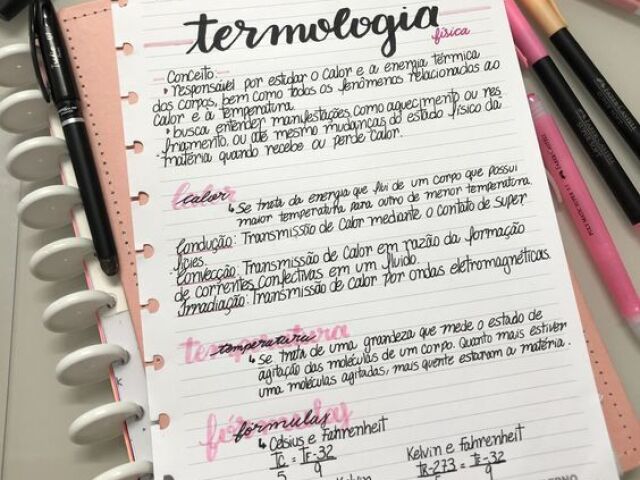 termologia
física
Conceito:
• responsável por estudar o calor e a energia térmica
dos corpos, bem como todos os fenômenos relacionados ao
calor e à temperatura.
• busca entender manifestações como aquecimento ou res
friamento, ou até mesmo mudanças do estado físico da
matéria quando recebe ou perde calor.
calor
↳ Se trata da energia que flui de um corpo que possui
maior temperatura para outro de menor temperatura.
Condução: Transmissão de Calor mediante o contato de super
fícies.
Convecção: Transmissão de Calor em razão da formação
de correntes convectivas em um fluido.
Irradiação: Transmissão de calor por ondas eletromagnéticas.
temperatura
↳ Se trata de uma grandeza que mede o estado de
agitação das moléculas de um corpo. Quanto mais estiverem
uma moléculas agitadas, mais quente estaram a matéria.
fórmulas
↳ Celsius e Fahrenheit
TC = TF-32
5 9
Kelvin e Fahrenheit
TK-273 = TF-32
5 9